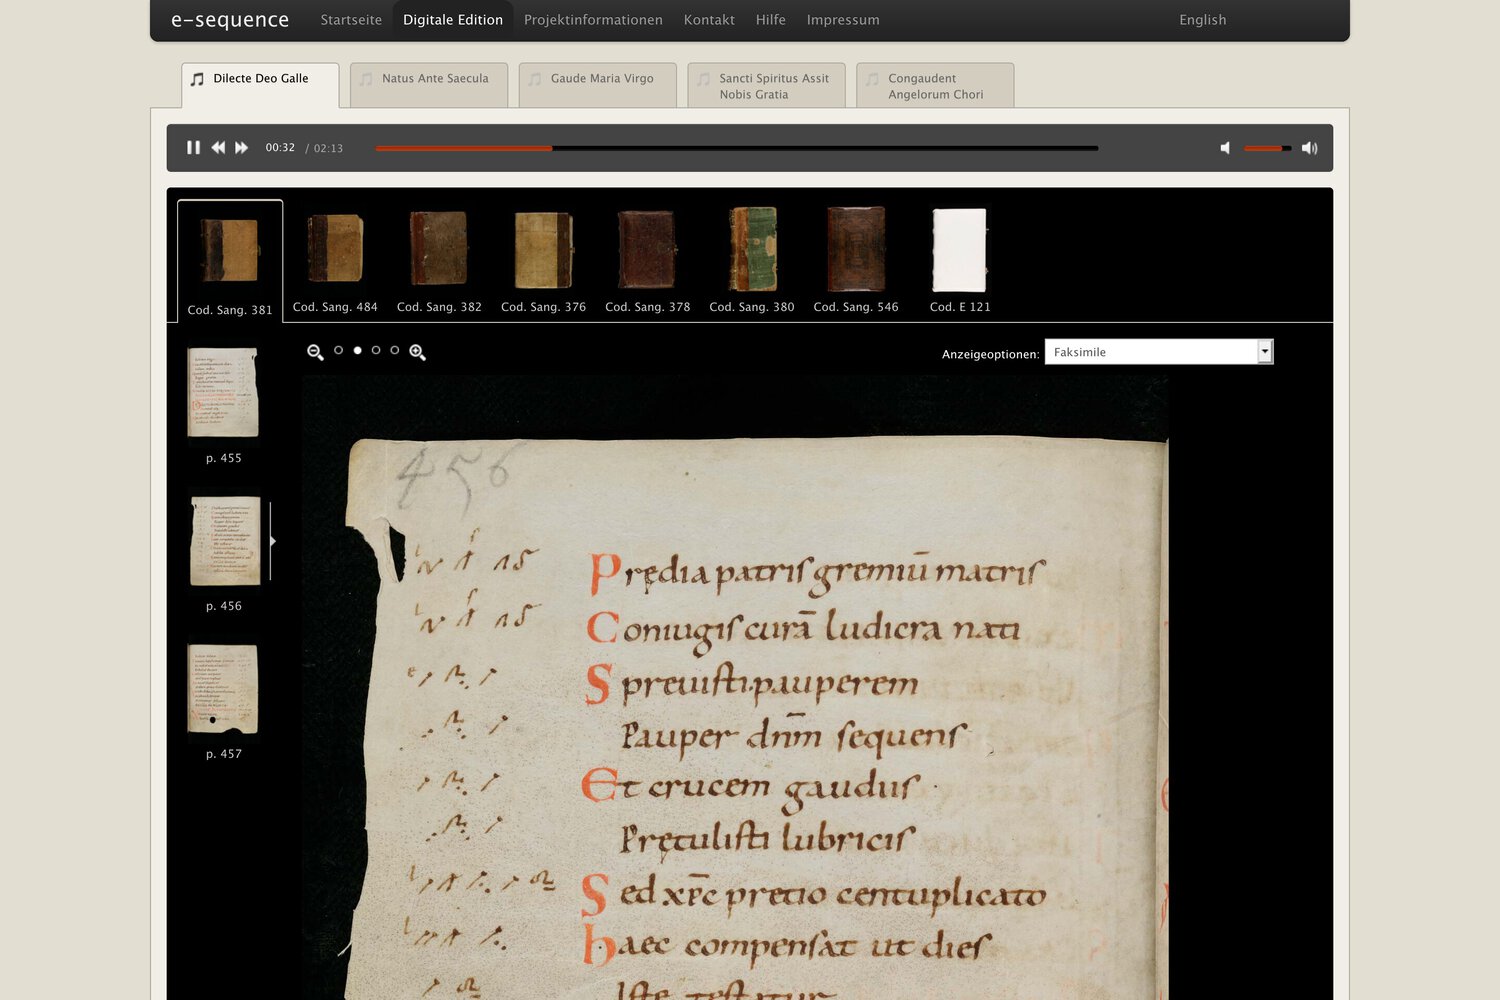 e-sequence Startseite Digitale Edition Projektinformationen Kontakt Hilfe Impressum English
Dilecte Deo Galle
Natus Ante Saecula
Gaude Maria Virgo
Sancti Spiritus Assit
Nobis Gratia
Congaudent
Angelorum Chori
00:32 / 02:13
Cod. Sang. 381
Cod. Sang. 484
Cod. Sang. 382
Cod. Sang. 376
Cod. Sang. 378
Cod. Sang. 380
Cod. Sang. 546
Cod. E 121
Anzeigeoptionen: Faksimile
p. 455
p. 456
p. 457
456
Prędia patris gremiū matris
Coniugis curā ludicra nati
Spreuisti pauperem
Pauper dn̄m sequens
Et crucem gaudus
Prętulisti lubricis
Sed xp̄c precio centuplicato
haec compensat ut dies
Iste testatur